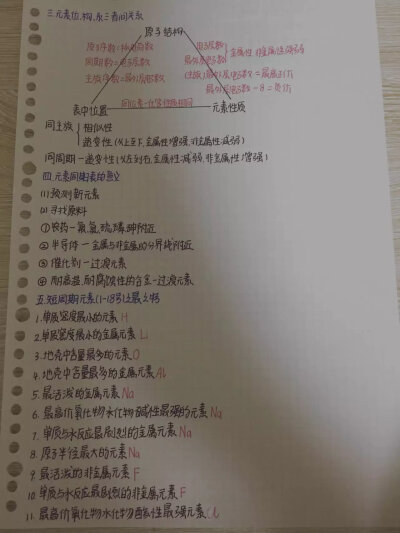 三.元素位、构、性三者间关系
原子结构
原子序数=核电荷数
周期数=电子层数
主族序数=最外层电子数
电子层数
最外层电子数
金属性 非金属性强弱
(主族)最外层电子数=最高正价
最外层电子数-8=负价
表中位置
同位置-化学性质相同
元素性质
同主族
相似性
递变性(从上至下,金属性增强,非金属性减弱)
同周期-递变性(从左到右,金属性减弱,非金属性增强)
四.元素周期表的意义
(1)预测新元素
(2)寻找原料
①农药-氟,氯,硫,磷,砷附近
②半导体-金属与非金属的分界线附近
③催化剂-过渡元素
④耐高温,耐腐蚀性的合金-过渡元素
五.短周期元素(1-18号)之最
1.单质密度最小的元素H
2.单质密度最小的金属元素Li
3.地壳中含量最多的元素O
4.地壳中含量最多的金属元素Al
5.最活泼的金属元素Na
6.最高价氧化物水化物碱性最强的元素Na
7.单质与水反应最剧烈的金属元素Na
8.原子半径最大的元素Na
9.最活泼的非金属元素F
10.单质与水反应最剧烈的非金属元素F
11.最高价氧化物水化物酸性最强元素Cl